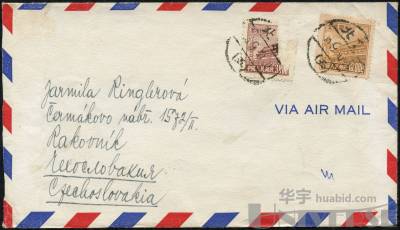 Jarmila Ringlerová
Čermákovo nábř. 1572/II.
Rakovník
Чехословакия
Czechoslovakia
VIA AIR MAIL
华宇 huabid.com